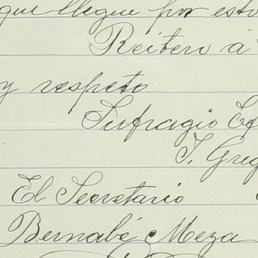 que llegue por esto
Reitero á
y respeto
Sufragio
El Secretario
Bernabé Meza